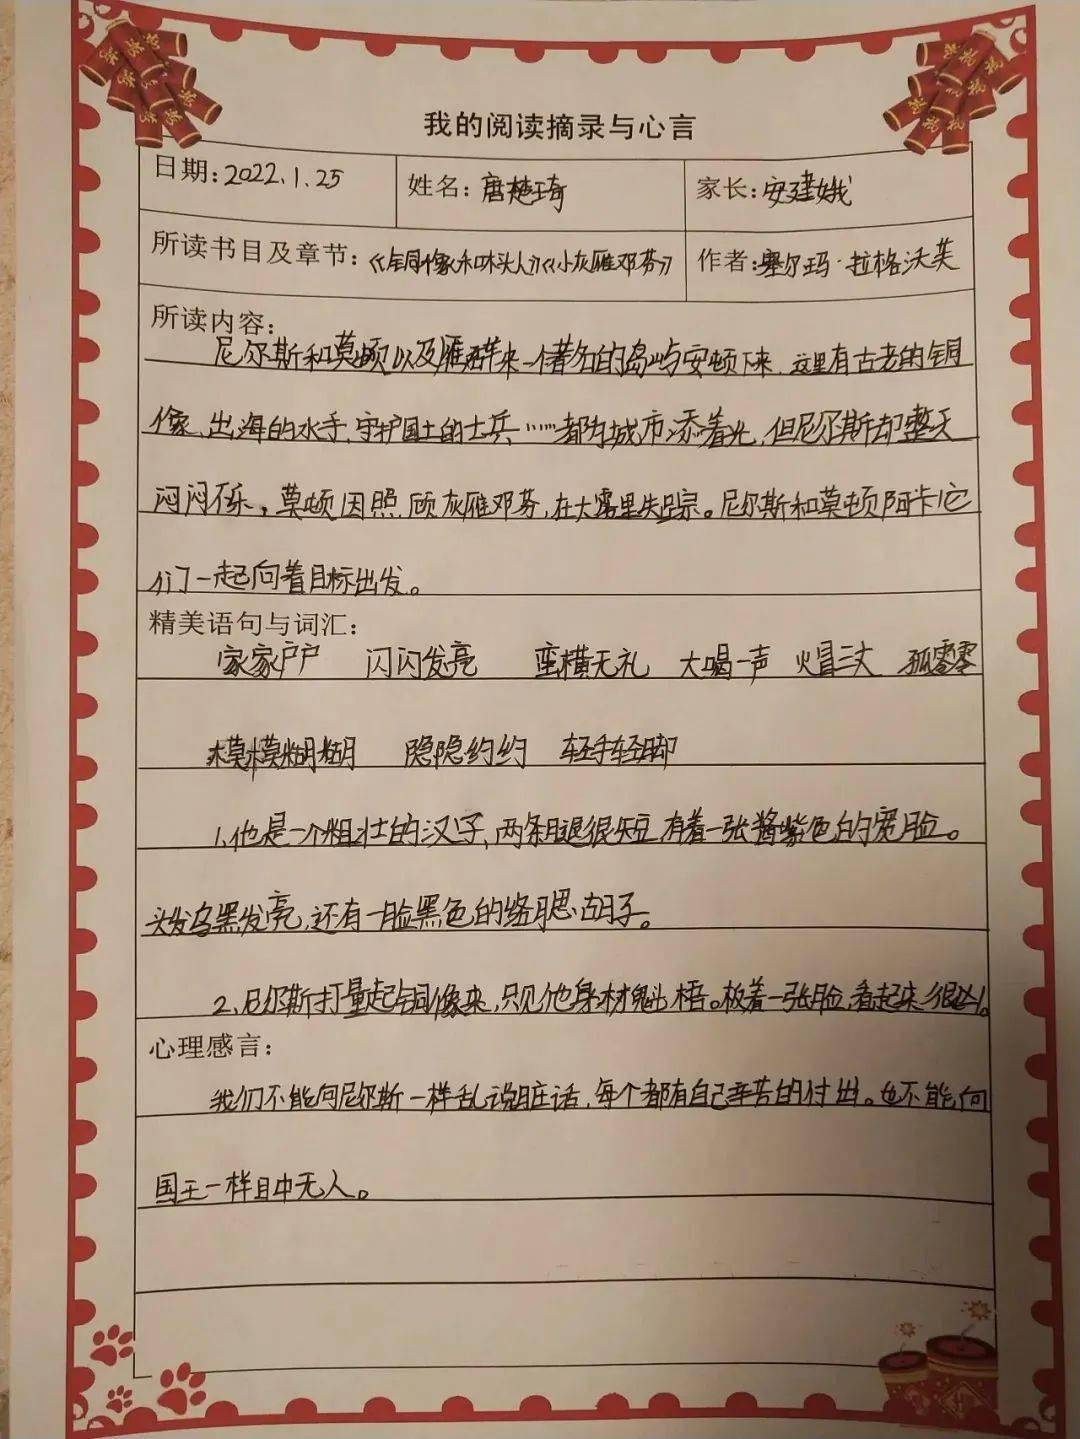 我的阅读摘录与心言
日期:2022.1.25 姓名:唐楚琦 家长:安建娥
所读书目及章节:《铜像和木头人》《小灰雁邓芬》 作者:塞尔玛·拉格沃芙
所读内容:
尼尔斯和莫顿以及雁群来一个著名的岛屿安顿下来,这里有古老的铜
像,出海的水手,守护国土的士兵……都为城市添着光,但尼尔斯却整天
闷闷不乐,莫顿因照顾灰雁邓芬,在大雾里失踪。尼尔斯和莫顿阿卡它
们一起向着目标出发。
精美语句与词汇:
家家户户 闪闪发亮 蛮横无礼 大喝一声 火冒三丈 孤零零
模模糊糊 隐隐约约 轻手轻脚
1、他是一个粗壮的汉子,两条腿很短,有着一张酱紫色的宽脸。
头发乌黑发亮,还有一脸黑色的络腮胡子。
2、尼尔斯打量起铜像来,只见他身材魁梧。板着一张脸,看起来很凶。
心理感言:
我们不能向尼尔斯一样乱说脏话,每个都有自己辛苦的付出。也不能向
国王一样目中无人。